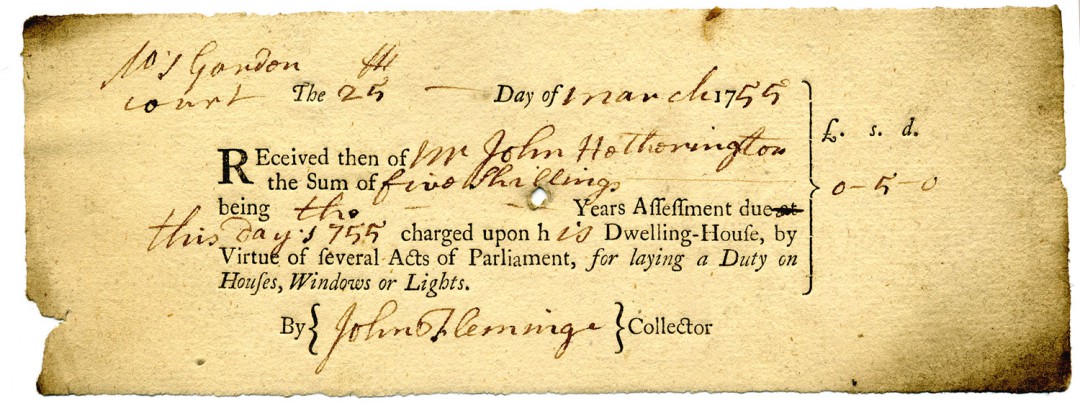 No 5 Gardon
court The 25 th Day of march 1755
£. s. d.
REceived then of Mr John Hetherington
the Sum of five shillings 0-5-0
being the Years Aſſeſſment due at
this day 1755 charged upon h is Dwelling-Houſe, by
Virtue of ſeveral Acts of Parliament, for laying a Duty on
Houſes, Windows or Lights.
By { John Fleminge } Collector